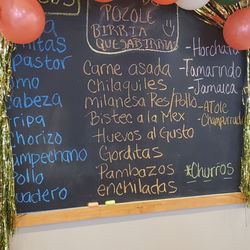 POZOLE
BIRRIA
QUESABIRRIAS
pastor
Cabeza
Pollo
Carne asada
Chilaquiles
milanesa Res/Pollo
Bistec a la Mex
Huevos al Gusto
Gorditas
Pambazos
enchiladas
-Horchata
-Tamarindo
-Jamaica
-ATole
-Champurrado
*Churros